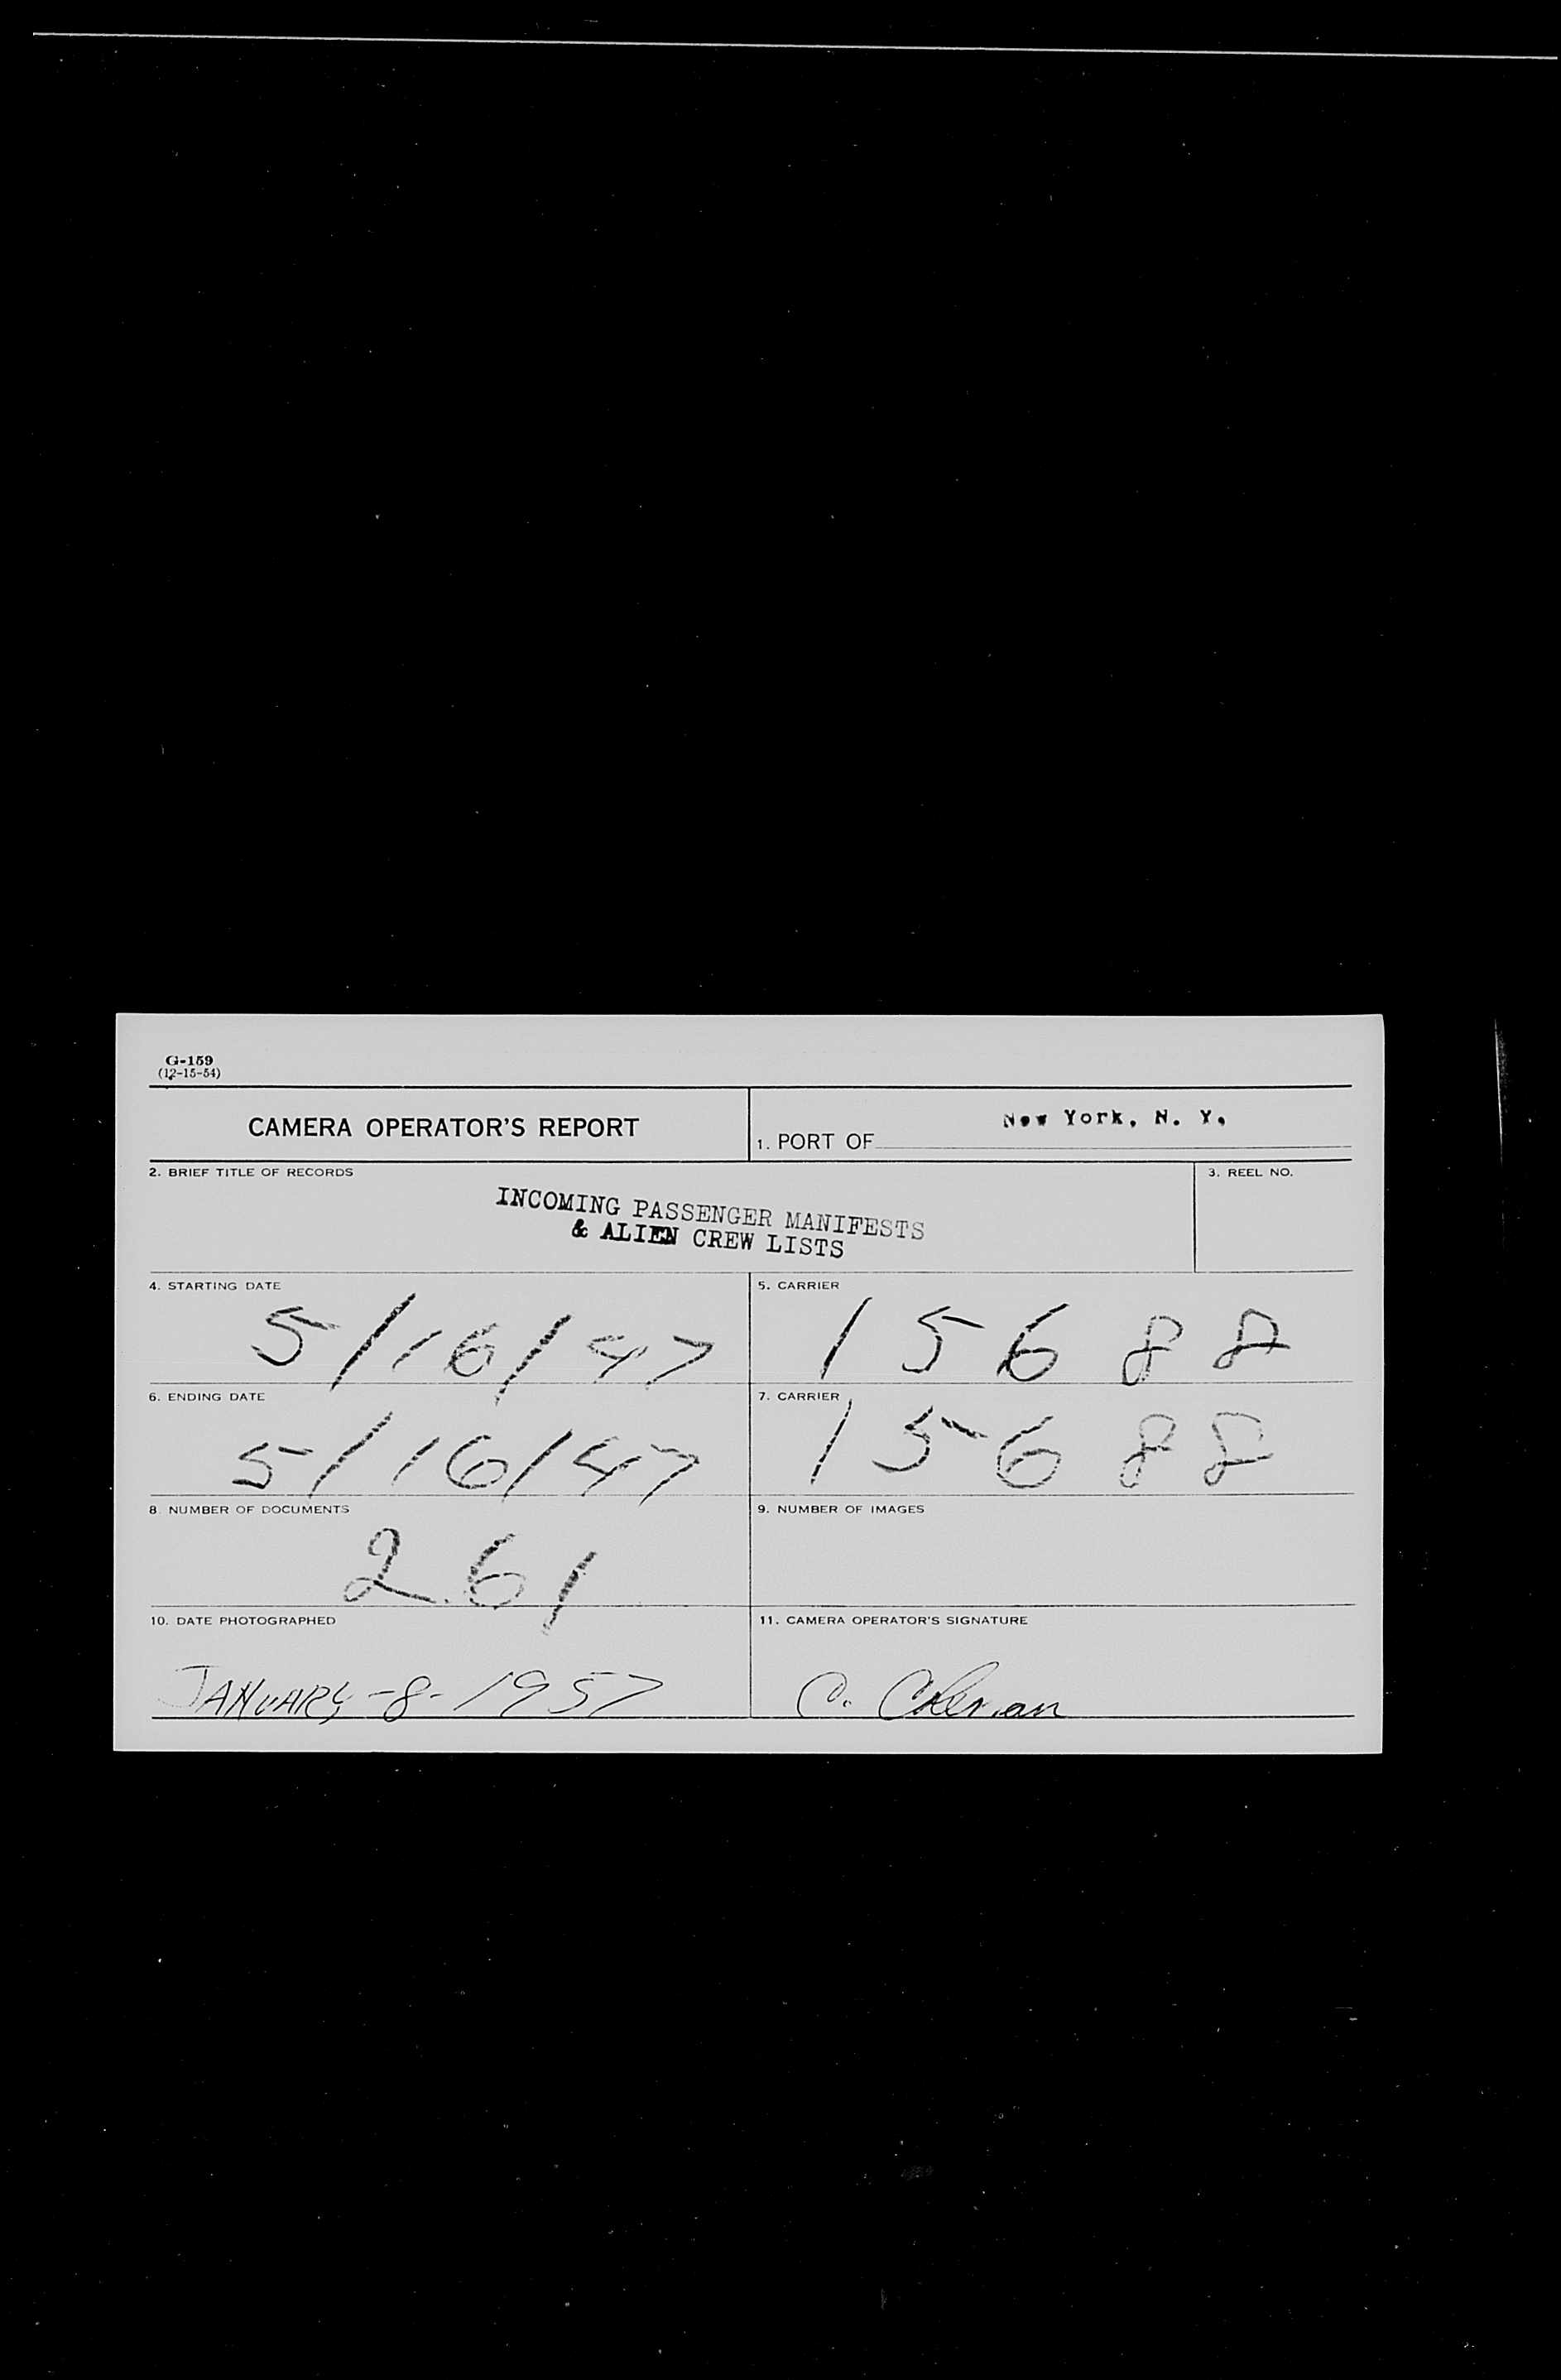 G-159
(12-15-54)
CAMERA OPERATOR'S REPORT
1. PORT OF New York, N. Y.
2. BRIEF TITLE OF RECORDS
INCOMING PASSENGER MANIFESTS
& ALIEN CREW LISTS
3. REEL NO.
4. STARTING DATE
5/16/47
5. CARRIER
15688
6. ENDING DATE
5/16/47
7. CARRIER
15688
8. NUMBER OF DOCUMENTS
261
9. NUMBER OF IMAGES
10. DATE PHOTOGRAPHED
JANUARY-8-1957
11. CAMERA OPERATOR'S SIGNATURE
C. Coleman